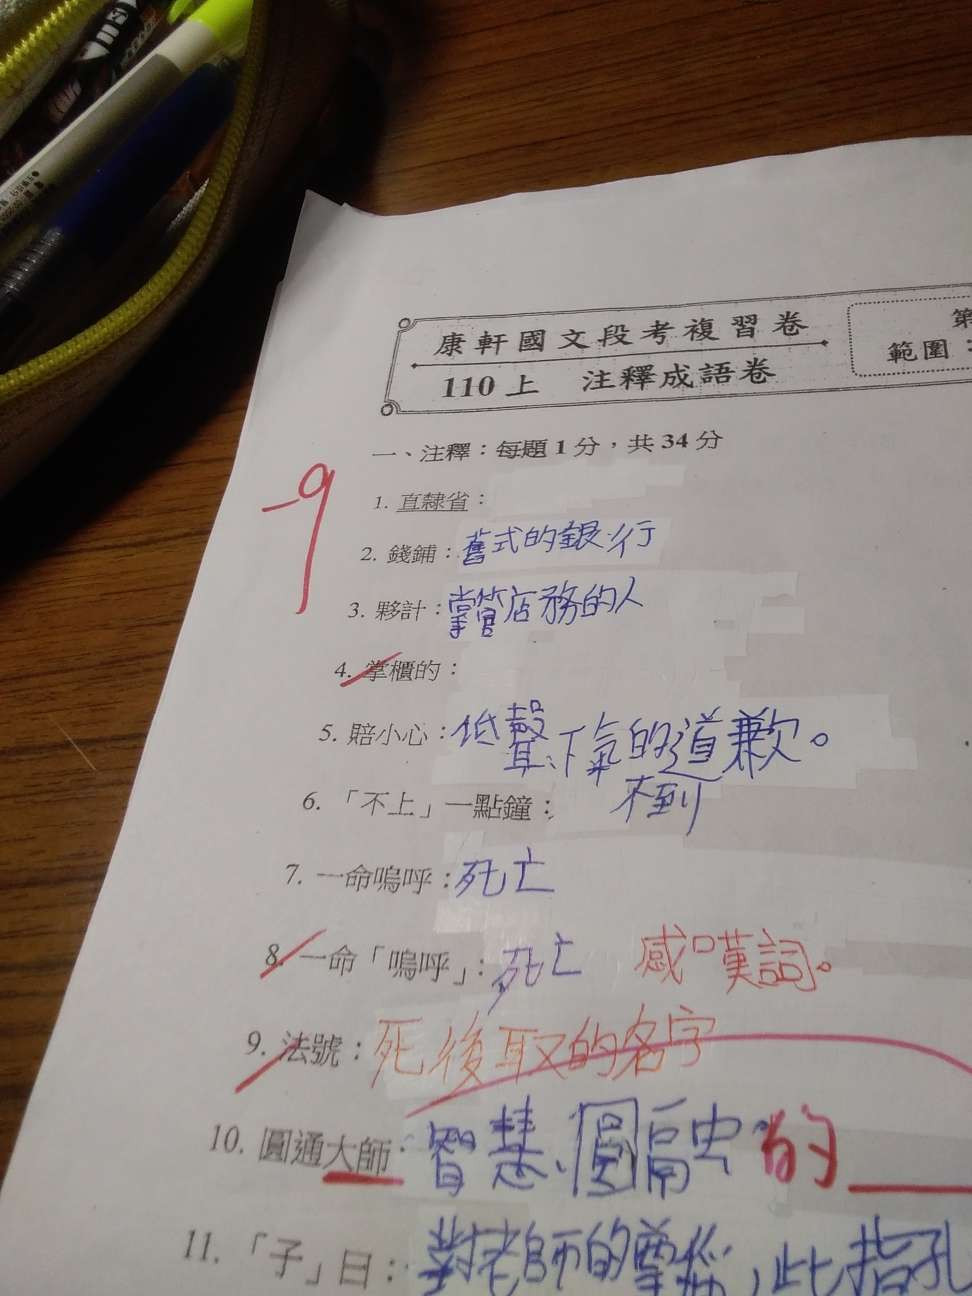 康軒國文段考複習卷
110 上 注釋成語卷
第
範圍：
一、注釋：每題 1 分，共 34 分
-9
1. 直隸省：
2. 錢鋪：舊式的銀行
3. 夥計：掌管店務的人
4. 掌櫃的：
5. 賠小心：低聲下氣的道歉。
6. 「不上」一點鐘：不到
7. 一命嗚呼：死亡
8. 一命「嗚呼」：死亡 感嘆詞。
9. 法號：死後取的名字
10. 圓通大師：智慧、圓融 的
11. 「子」曰：對老師的尊稱，此指孔